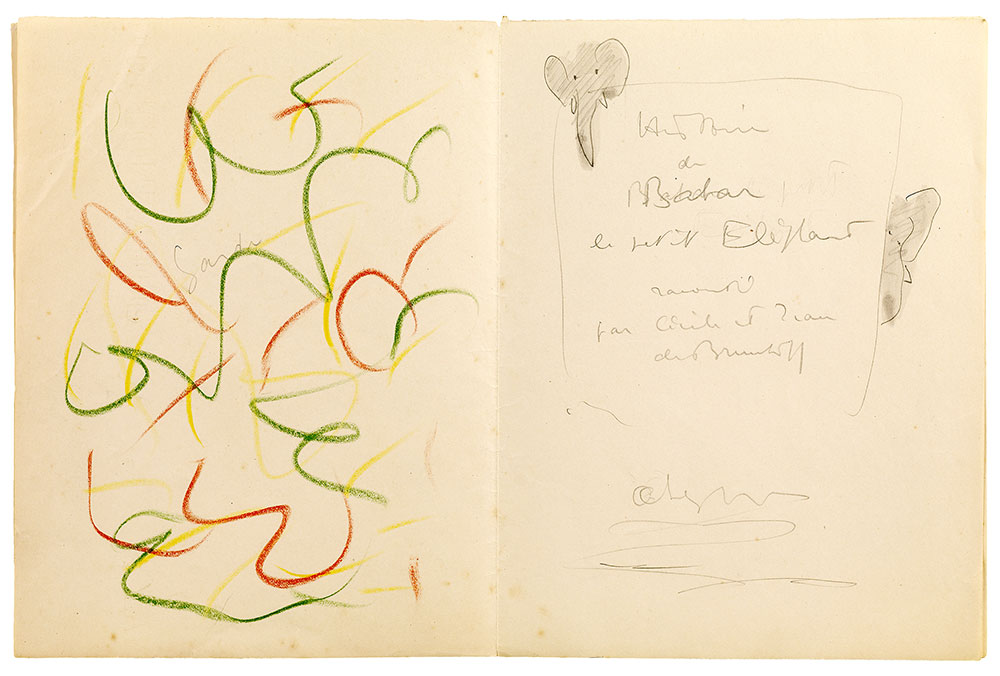 Histoire
de
Babar
le petit Eléphant
raconté
par Cécile et Jean
de Brunhoff